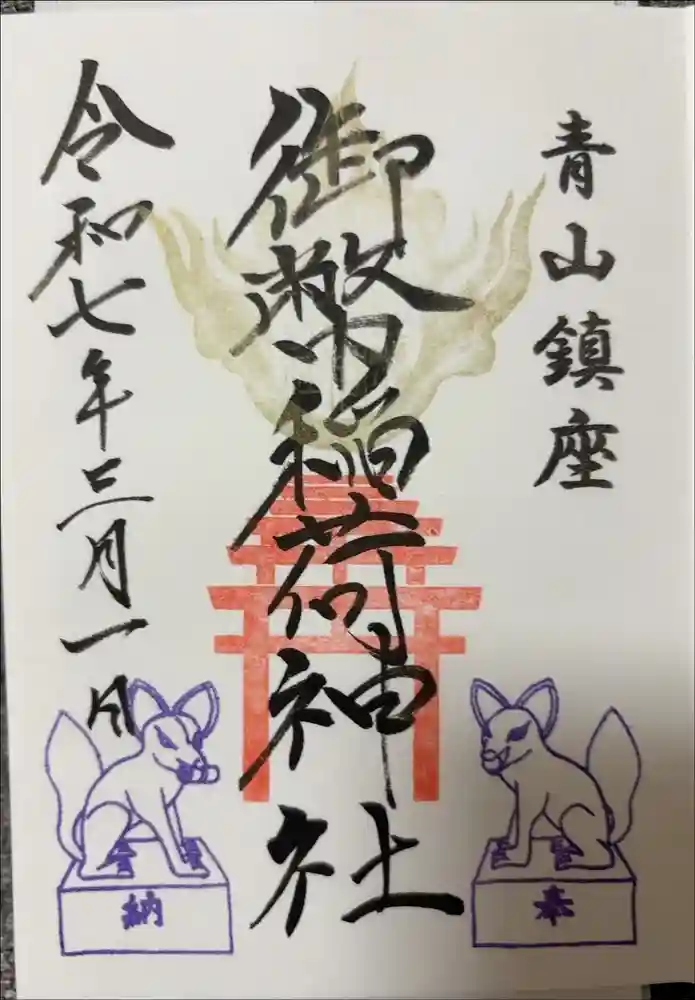 青山鎮座
御幣稲荷神社
令和七年三月一日
奉
納